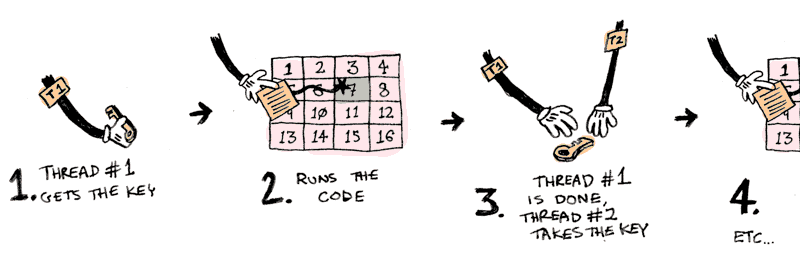 T1
1. THREAD #1
GETS THE KEY
1 2 3 4
6 7 8
9 10 11 12
13 14 15 16
2. RUNS THE
CODE
T1
T2
3. THREAD #1
IS DONE,
THREAD #2
TAKES THE KEY
1
13
4.
ETC...